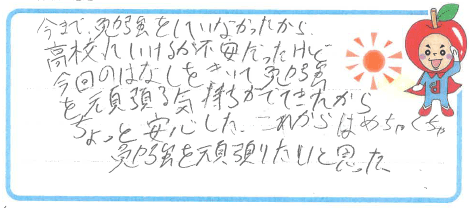 今まで、勉強をしていなかったから
高校にいけるか不安だったけど
今回のはなしをきいて勉強
を頑張る気持ちがでてきたから
ちょっと安心した。これからはめちゃくちゃ
勉強を頑張りたいと思った
d